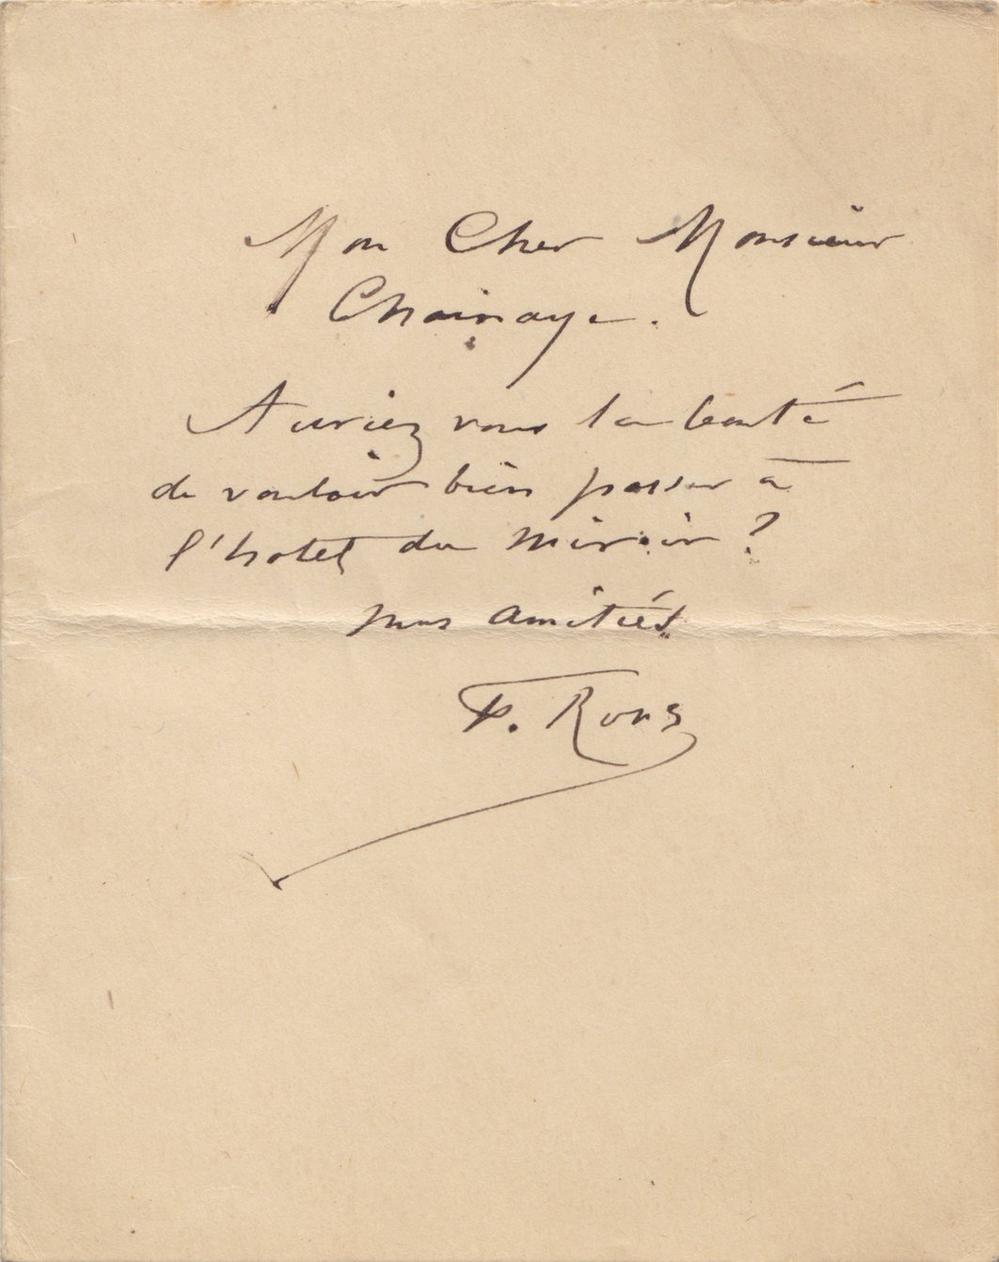 Mon Cher Monsieur
Chainaye.
Auriez vous la bonté
de vouloir bien passer à
l'hotel du miroir ?
mes amitiés
F. Rops